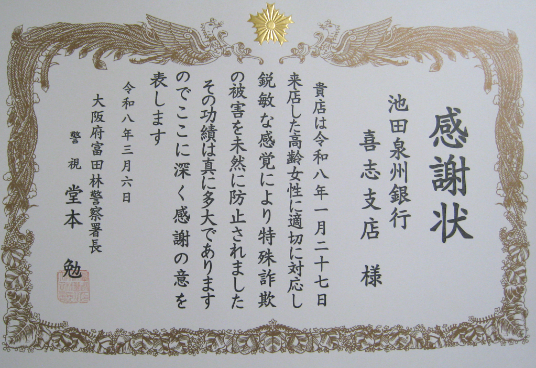 感謝状
池田泉州銀行
喜志支店 様
貴店は令和八年一月二十七日
来店した高齢女性に適切に対応し
鋭敏な感覚により特殊詐欺
の被害を未然に防止されました
その功績は真に多大であります
のでここに深く感謝の意を
表します
令和八年三月六日
大阪府富田林警察署長
警視 堂本 勉